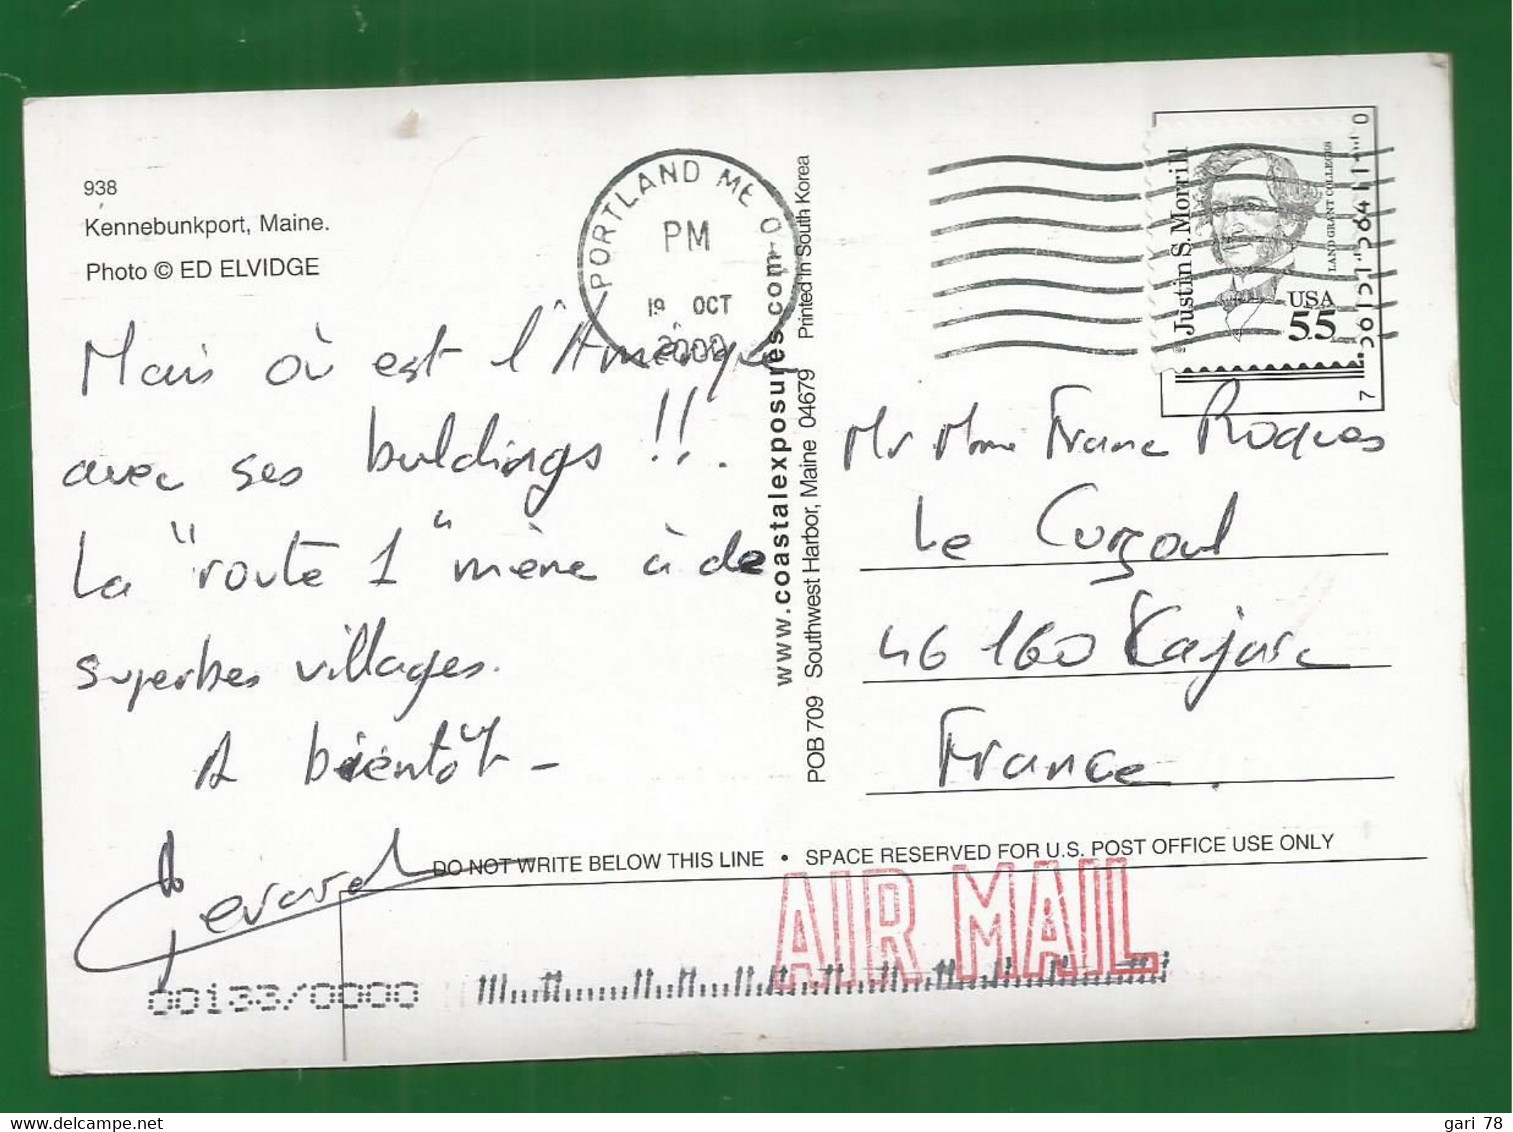 938
Kennebunkport, Maine.
Photo © ED ELVIDGE
PORTLAND ME
PM
19 OCT
2000
Mais où est l'Amérique
avec ses buldings !!!
La "route 1" mène à de
superbes villages.
A bientôt -
Gerard
www.coastalexposures.com
POB 709 Southwest Harbor, Maine 04679 Printed in South Korea
Justin S. Morrill
LAND GRANT COLLEGES
USA
55
Mr Mme Franc Roques
Le Curzoul
46 160 Cajarc
France.
DO NOT WRITE BELOW THIS LINE • SPACE RESERVED FOR U.S. POST OFFICE USE ONLY
AIR MAIL
00133/0000
delcampe.net
gari 78